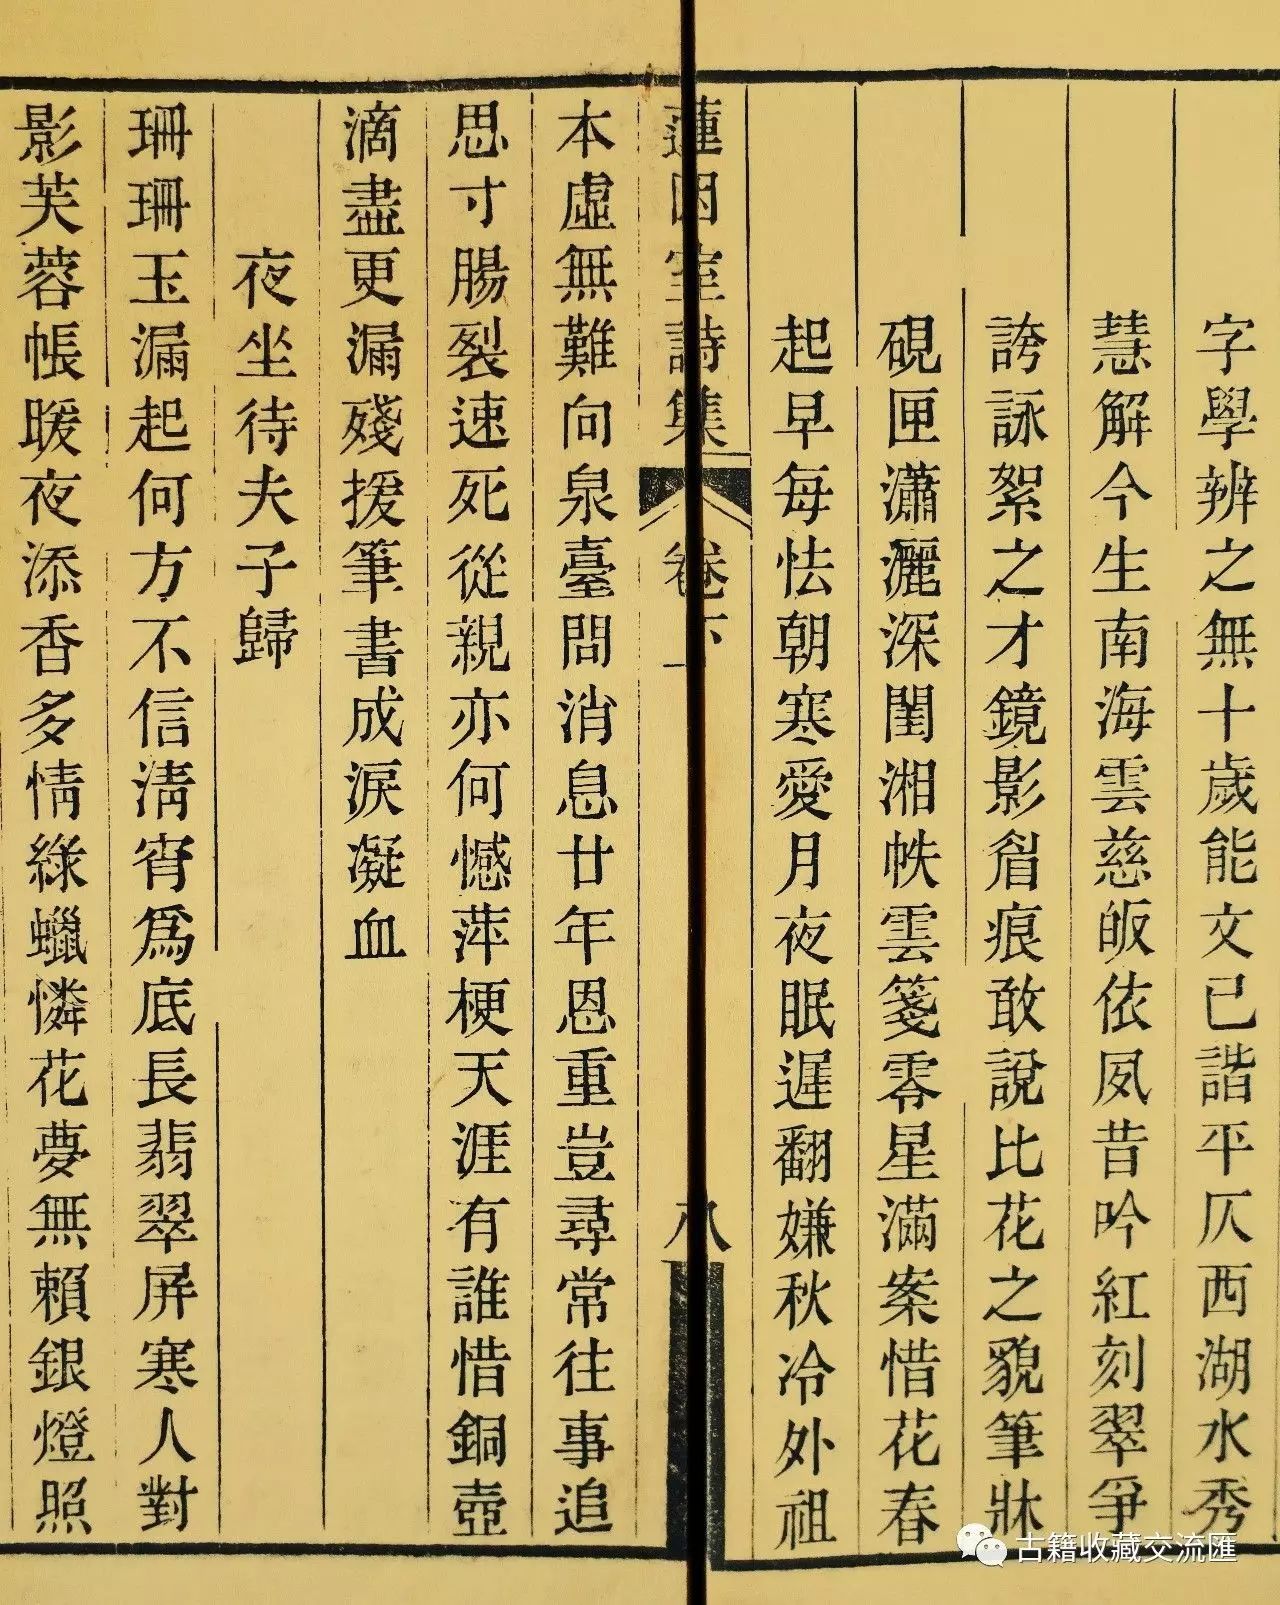 字學辨之無十歲能文已諧平仄西湖水秀
慧解今生南海雲慈皈依夙昔吟紅刻翠爭
誇詠絮之才鏡影眉痕敢說比花之貌筆牀
硯匣瀟灑深閨湘帙雲箋零星滿案惜花春
起早每怯朝寒愛月夜眠遲翻嫌秋冷外祖
蓮因室詩集 卷下 八
本虛無難向泉臺問消息廿年恩重豈尋常往事追
思寸腸裂速死從親亦何憾萍梗天涯有誰惜銅壺
滴盡更漏殘援筆書成淚凝血
夜坐待夫子歸
珊珊玉漏起何方不信清宵爲底長翡翠屏寒人對
影芙蓉帳暖夜添香多情綠蠟憐花夢無賴銀燈照
古籍收藏交流匯